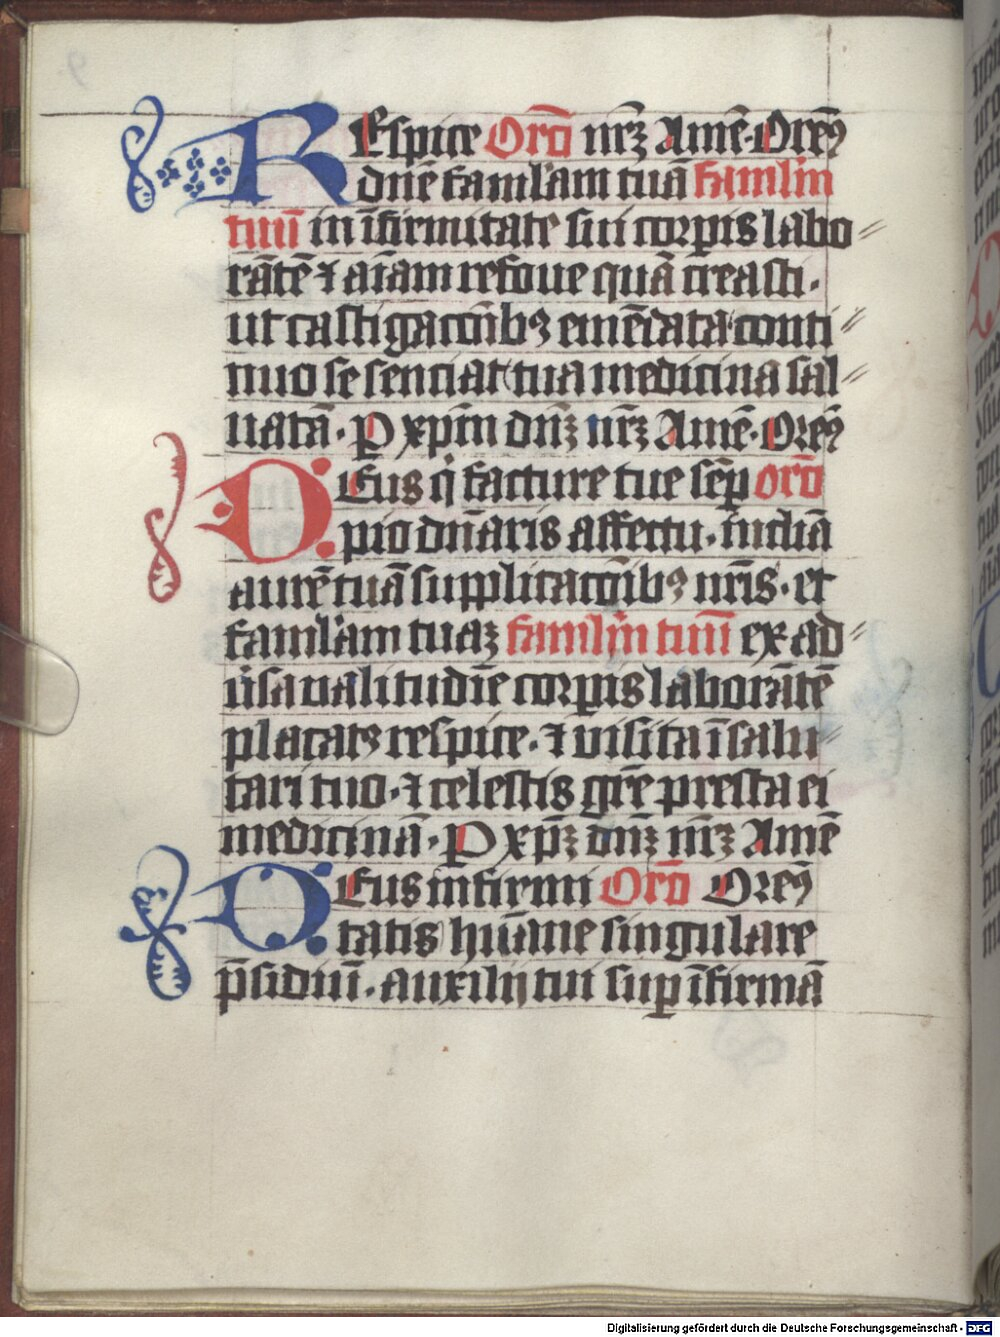 REspice Orō nr̄ꝫ Amē. Orēꝰ
dn̄e famlam̄ tuā famlm̄
tuū in īfirmitate sui corpis labo⸗
rātē ⁊ aīam refoue quā creasti.
ut castigacōībꝫ emēdata conti⸗
nuo se senciat tua medicina sal⸗
uatā. P xpm̄ dn̄ꝫ nr̄ꝫ Amē. Orēꝰ
DEus q̇ facture tue sēp orō
pio dn̄aris affectu. inclīa
aurē tuā supplicacōībꝰ nr̄is. et
famlam̄ tuaꝫ famlm̄ tuū ex ad⸗
u̇sa ualitudīe corpis laborātē
placatꝰ respice. ⁊ visita ī salu⸗
tari tuo. ⁊ celestis gr̄e presta ei
medicinā. P xp̄ꝫ dn̄ꝫ nr̄ꝫ Amē
DEus infirmi Orō Orēꝰ
tatis hūane singulare
p̄sidiū. auxilij tui sup īfirmā
Digitalisierung gefördert durch die Deutsche Forschungsgemeinschaft - DFG